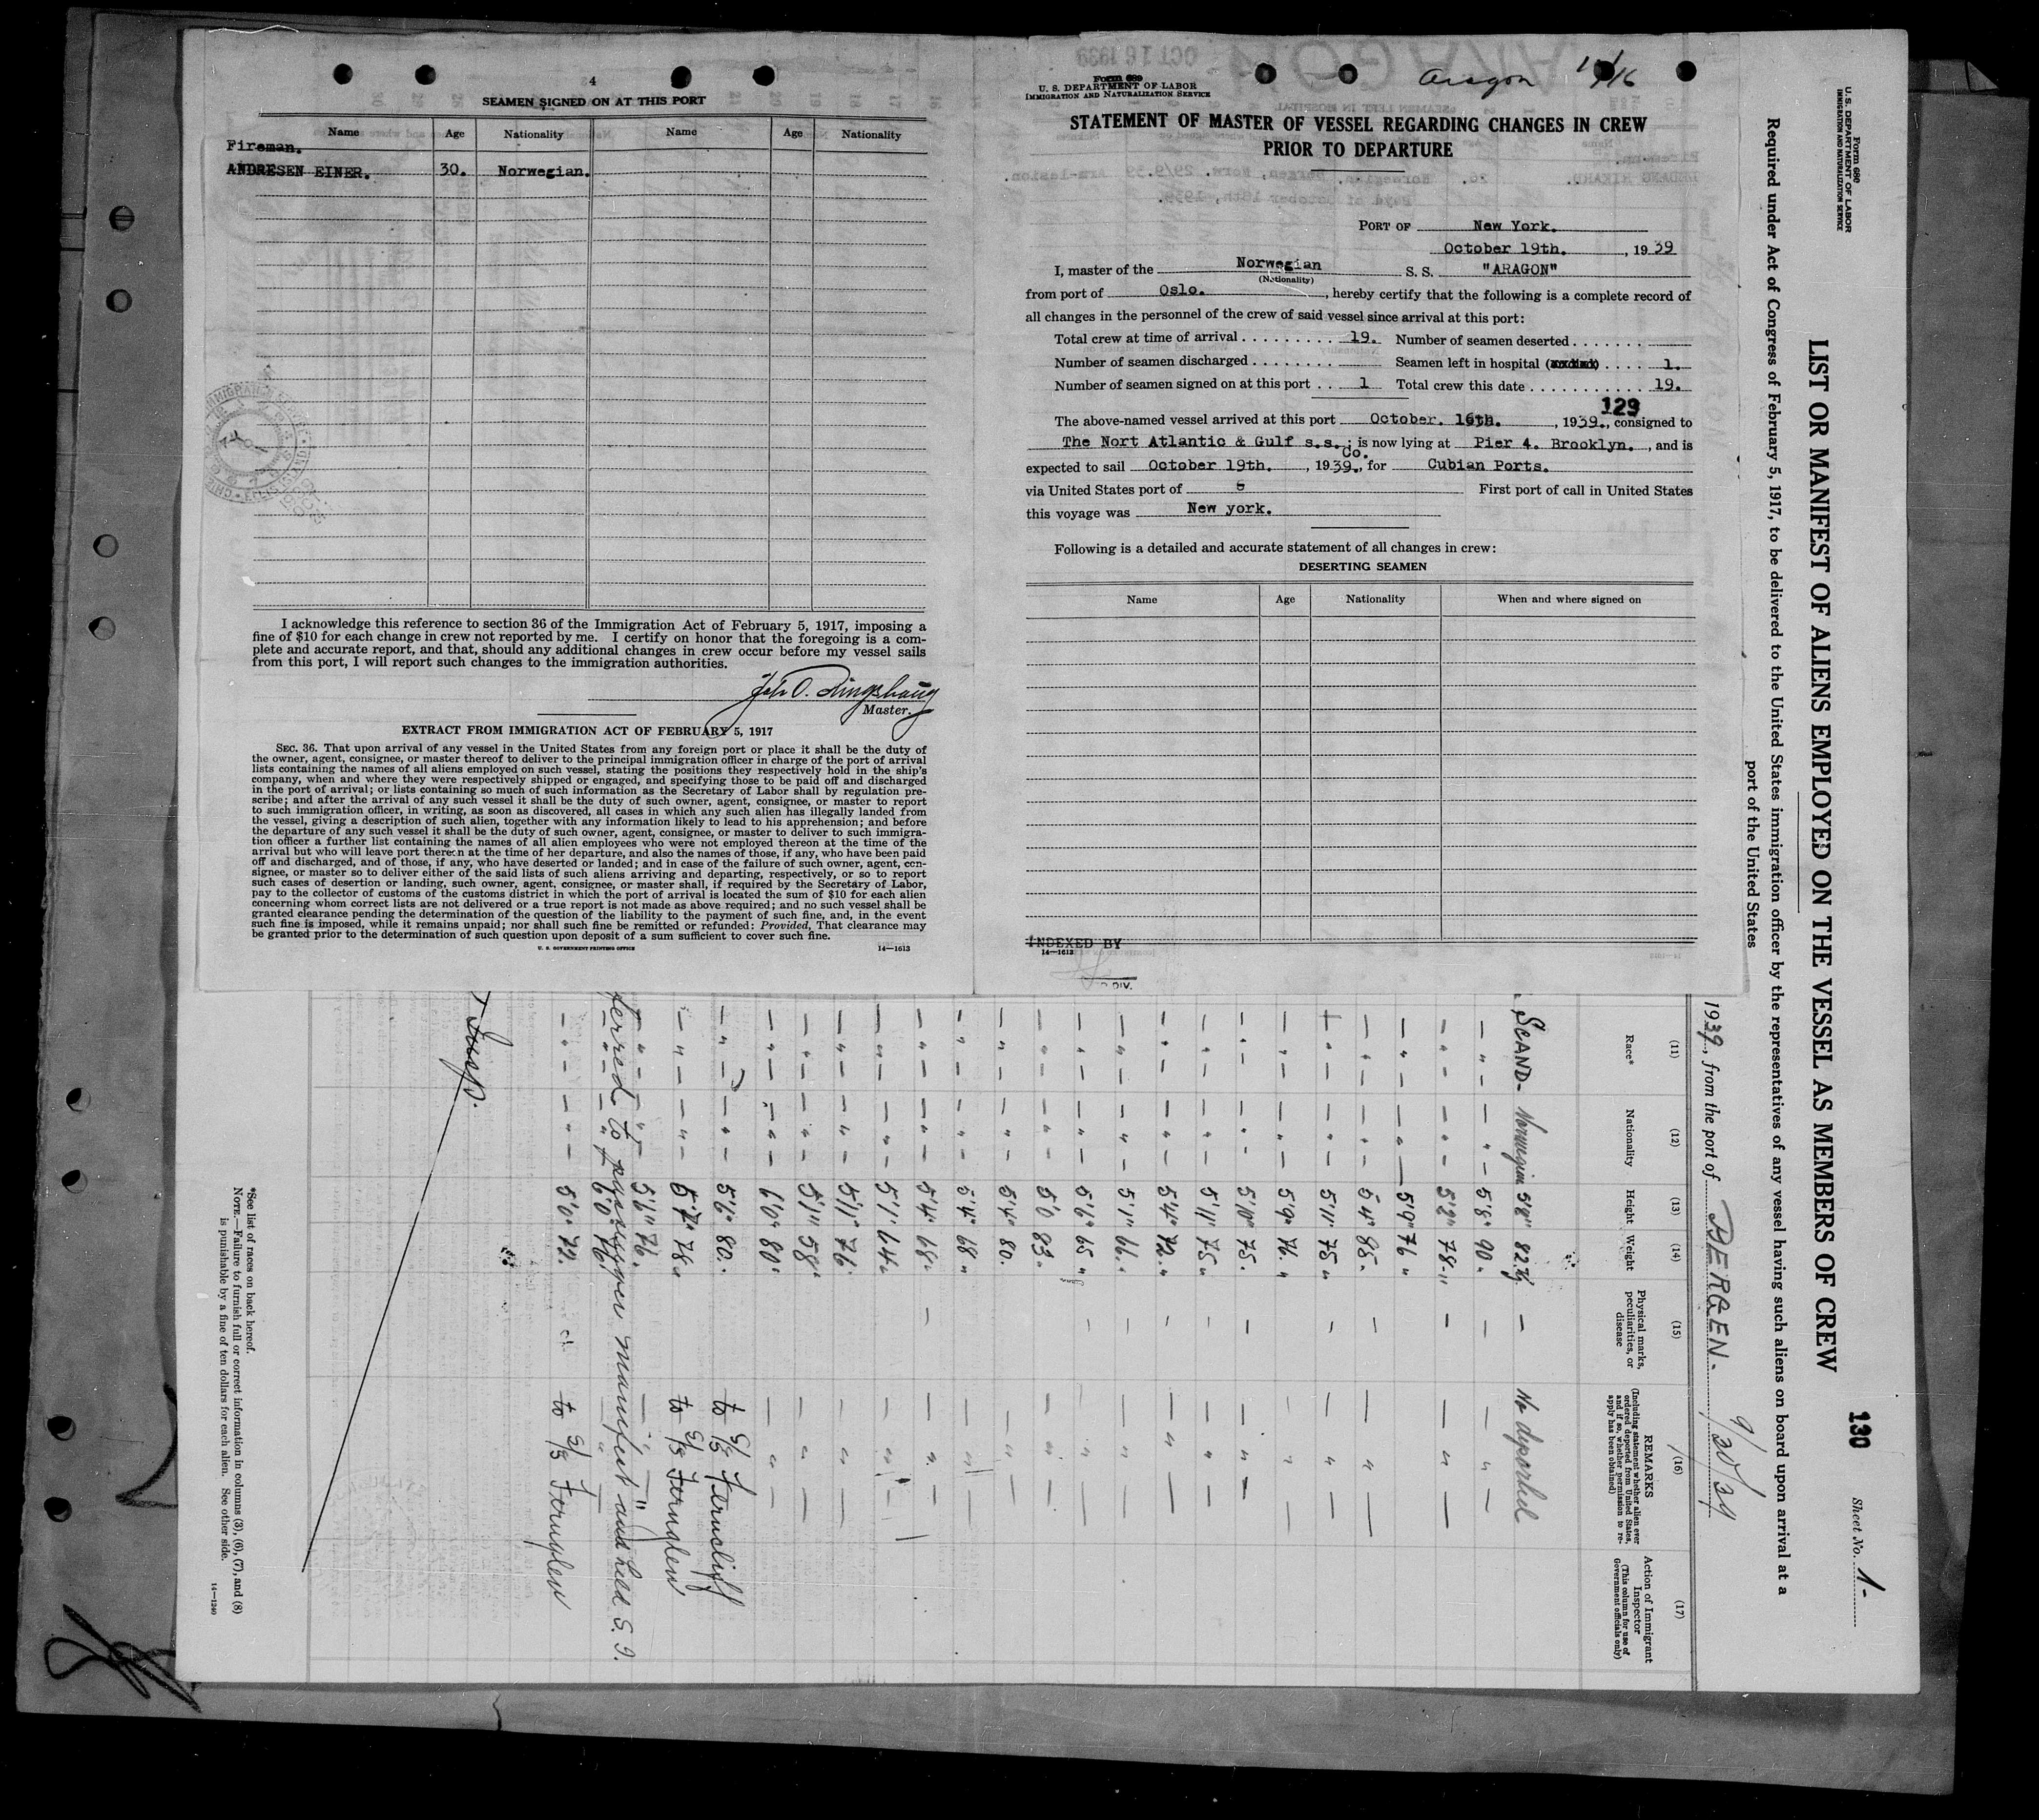 4
SEAMEN SIGNED ON AT THIS PORT
Name Age Nationality Name Age Nationality
Fireman.
ANDRESEN EINER. 30. Norwegian.
I acknowledge this reference to section 36 of the Immigration Act of February 5, 1917, imposing a
fine of $10 for each change in crew not reported by me. I certify on honor that the foregoing is a com-
plete and accurate report, and that, should any additional changes in crew occur before my vessel sails
from this port, I will report such changes to the immigration authorities.
Master.
EXTRACT FROM IMMIGRATION ACT OF FEBRUARY 5, 1917
SEC. 36. That upon arrival of any vessel in the United States from any foreign port or place it shall be the duty of
the owner, agent, consignee, or master thereof to deliver to the principal immigration officer in charge of the port of arrival
lists containing the names of all aliens employed on such vessel, stating the positions they respectively hold in the ship's
company, when and where they were respectively shipped or engaged, and specifying those to be paid off and discharged
in the port of arrival; or lists containing so much of such information as the Secretary of Labor shall by regulation pre-
scribe; and after the arrival of any such vessel it shall be the duty of such owner, agent, consignee, or master to report
to such immigration officer, in writing, as soon as discovered, all cases in which any such alien has illegally landed from
the vessel, giving a description of such alien, together with any information likely to lead to his apprehension; and before
the departure of any such vessel it shall be the duty of such owner, agent, consignee, or master to deliver to such immigra-
tion officer a further list containing the names of all alien employees who were not employed thereon at the time of the
arrival but who will leave port thereon at the time of her departure, and also the names of those, if any, who have been paid
off and discharged, and of those, if any, who have deserted or landed; and in case of the failure of such owner, agent, con-
signee, or master so to deliver either of the said lists of such aliens arriving and departing, respectively, or so to report
such cases of desertion or landing, such owner, agent, consignee, or master shall, if required by the Secretary of Labor,
pay to the collector of customs of the customs district in which the port of arrival is located the sum of $10 for each alien
concerning whom correct lists are not delivered or a true report is not made as above required; and no such vessel shall be
granted clearance pending the determination of the question of the liability to the payment of such fine, and, in the event
such fine is imposed, while it remains unpaid; nor shall such fine be remitted or refunded: Provided, That clearance may
be granted prior to the determination of such question upon deposit of a sum sufficient to cover such fine.
U. S. GOVERNMENT PRINTING OFFICE 14—1613
Form 689
U. S. DEPARTMENT OF LABOR
IMMIGRATION AND NATURALIZATION SERVICE
Aragon
STATEMENT OF MASTER OF VESSEL REGARDING CHANGES IN CREW
PRIOR TO DEPARTURE
PORT OF New York.
October 19th. , 1939
I, master of the Norwegian S. S. "ARAGON"
(Nationality)
from port of Oslo. , hereby certify that the following is a complete record of
all changes in the personnel of the crew of said vessel since arrival at this port:
Total crew at time of arrival . . . . . . . . . 19. Number of seamen deserted . . . . . . .
Number of seamen discharged . . . . . . . . Seamen left in hospital . . . . 1.
Number of seamen signed on at this port . . 1 Total crew this date . . . . . . . . . . . 19.
129
The above-named vessel arrived at this port October. 16th. , 1939., consigned to
The Nort Atlantic & Gulf s.s. Co. ; is now lying at Pier 4. Brooklyn. , and is
expected to sail October 19th. , 1939., for Cubian Ports.
via United States port of First port of call in United States
this voyage was New york.
Following is a detailed and accurate statement of all changes in crew:
DESERTING SEAMEN
Name Age Nationality When and where signed on
INDEXED BY
14—1613
DIV.
Form 680
U. S. DEPARTMENT OF LABOR
IMMIGRATION AND NATURALIZATION SERVICE
130
Sheet No. 1-
LIST OR MANIFEST OF ALIENS EMPLOYED ON THE VESSEL AS MEMBERS OF CREW
Required under Act of Congress of February 5, 1917, to be delivered to the United States immigration officer by the representatives of any vessel having such aliens on board upon arrival at a
port of the United States
1939, from the port of BERGEN.
(11) (12) (13) (14) (15) (16) (17)
Race* Nationality Height Weight Physical marks, peculiarities, or disease REMARKS (Including statement whether alien ever ordered deported from United States, and if so, whether permission to re-apply has been obtained) Action of Immigrant Inspector (This column for use of Government officials only)
SCAND- Norwegian 5'8" 82½ — No deported
— " — — " — 5'8" 90 " — — " —
— " — — " — 5'8" 78-" — — " —
— " — — " — 5'9" 76 "
— " — — " — 5'4" 85- — — " —
— " — — " — 5'11" 75 " — — " —
— " — — " — 5'9" 76. " — " —
— " — — " — 5'10" 75. — — " —
— " — — " — 5'11" 75 " — — " —
— " — — " — 5'4" 72. " — — " —
— " — — " — 5'1" 66. " — — " —
— " — — " — 5'6" 65 " — — " —
— " — — " — 5'0 83. — " —
— " — — " — 5'4" 80. — " —
— " — — " — 5'4" 68 " — " —
— " — — " — 5'4" 68. — — " —
— " — — " — 5'1" 64. — " —
— " — — " — 5'11" 76. — " —
— " — — " — 5'1" 58. — " —
— " — — " — 6'0" 80. — " —
— " — — " — 5'6" 80. to S/S Ferncliff
— " — — " — 78. to S/S Fernglen
— " — — " — 5'6" 76. — " —
ferred to passenger manifest and held S. I.
— " — — " — 6'0" 76.
— " — — " — 5'0" 72. to S/S Fernglen
Insp.
*See list of races on back hereof.
NOTE.—Failure to furnish full or correct information in columns (3), (6), (7), and (8)
is punishable by a fine of ten dollars for each alien. See other side.
14—1240